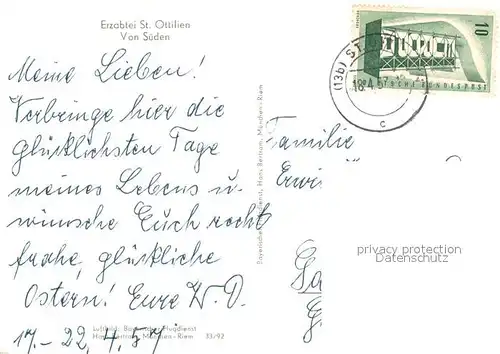 Erzabtei St. Ottilien
Von Süden
Meine Lieben!
Verbringe hier die
glücklichsten Tage
meines Lebens u.
wünsche Euch recht
frohe, glückliche
Ostern! Eure W. D.
17.-22.4.57
Luftbild: Bayerischer Flugdienst
Hans Bertram, München-Riem 33/92
Bayerischer Flugdienst, Hans Bertram, München-Riem
10
DEUTSCHE BUNDESPOST
(13b) ST.
18.4.57
c
Familie
Erwi
privacy protection
Datenschutz